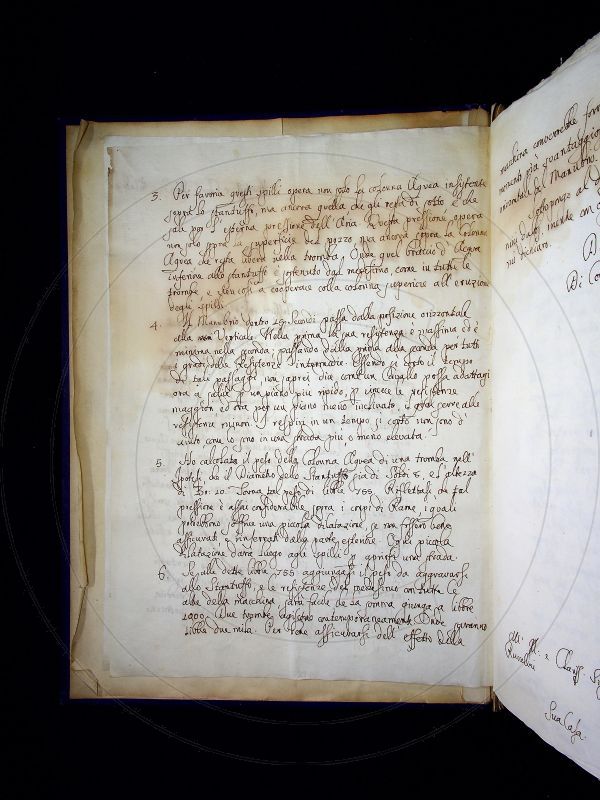 3. Per favorir questi spilli opera non solo la colonna Aquea insistente
sopra lo stantuffo, ma ancora quella che gli resta di sotto e che
sale per l'esterna pressione dell'Aria. Questa pressione opera
non solo sopra la superficie del pozzo, ma ancora sopra la colonna
Aquea che resta libera nella tromba; Onde quel tratto d'Acqua
inferiore allo stantuffo è sostenuto dal medesimo, come in tutte le
trombe e viene così a cooperare colla colonna superiore all'eruzione
degli spilli.
4. Il Manubrio dentro 15 secondi passa dalla posizione orizontale
alla Verticale. Nella prima la sua resistenza è massima ed è
minima nella seconda; passando dalla prima alla seconda per tutti
i gradi delle Resistenze intermedie. Essendo sì corto il tempo
di tale passaggio non saprei dire come un Cavallo possa adattarsi
ora a salire per un piano più ripido, per vincere le resistenze
maggiori ed ora per un piano meno inclinato, il qual serve alle
resistenze minori. I respiri in un tempo sì corto non sono d'
aiuto come lo sono in una strada più o meno elevata.
5. Ho calcolato il peso della Colonna Aquea di una tromba nell'
ipotesi che il Diametro dello Stantuffo sia di Soldi 8. e l'altezza
di Br: 10. Torna tal peso di libbre 755. Rifletasi che tal
pressione è assai considerabile sopra i corpi di Rame, i quali
potrebbono soffrire una piccola dilatazione, se non fossero bene
assicurati e inferrati dalla parte esteriore. Ogni piccola
dilatazione darà luogo agli spilli per aprirsi una strada.
6. Se alle dette libbre 755 aggiungasi il peso da aggravarsi
allo Stantuffo, e le resistenze del medesimo con tutte le
altre della macchina, sarà facile che la somma giunga a libbre
1000. Due trombe agiscono contemporaneamente, Onde saranno
libbre due mila. Per bene assicurarsi dell'effetto della
machina converrebbe
momenti più svantaggio
orizontale del Manubrio.